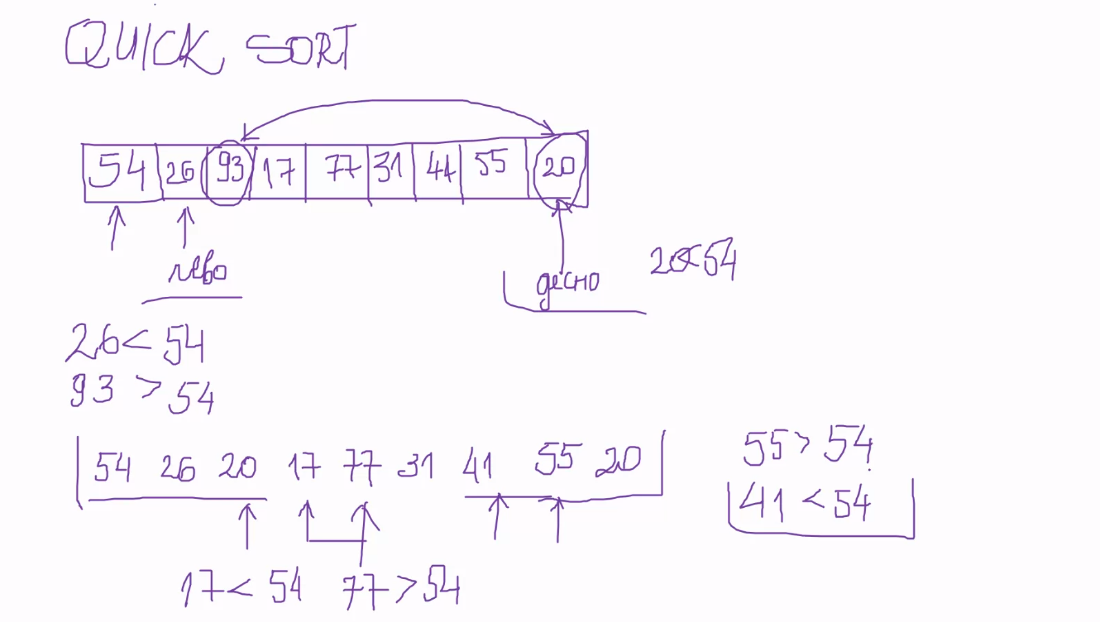 QUICK SORT
54 26 93 17 77 31 44 55 20
лево
десно
20<54
26< 54
93 > 54
54 26 20 17 77 31 41 55 20
55 > 54
41 < 54
17 < 54 77 > 54